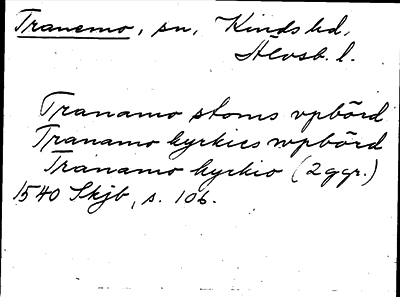 Tranemo, sn, Kinds hd,
Älvsb. l.
Tranamo stoms vpbörd
Tranamo kyrkies wpbörd
Tranamo kyrkio (2 ggr.)
1540 Skjb, s. 106.